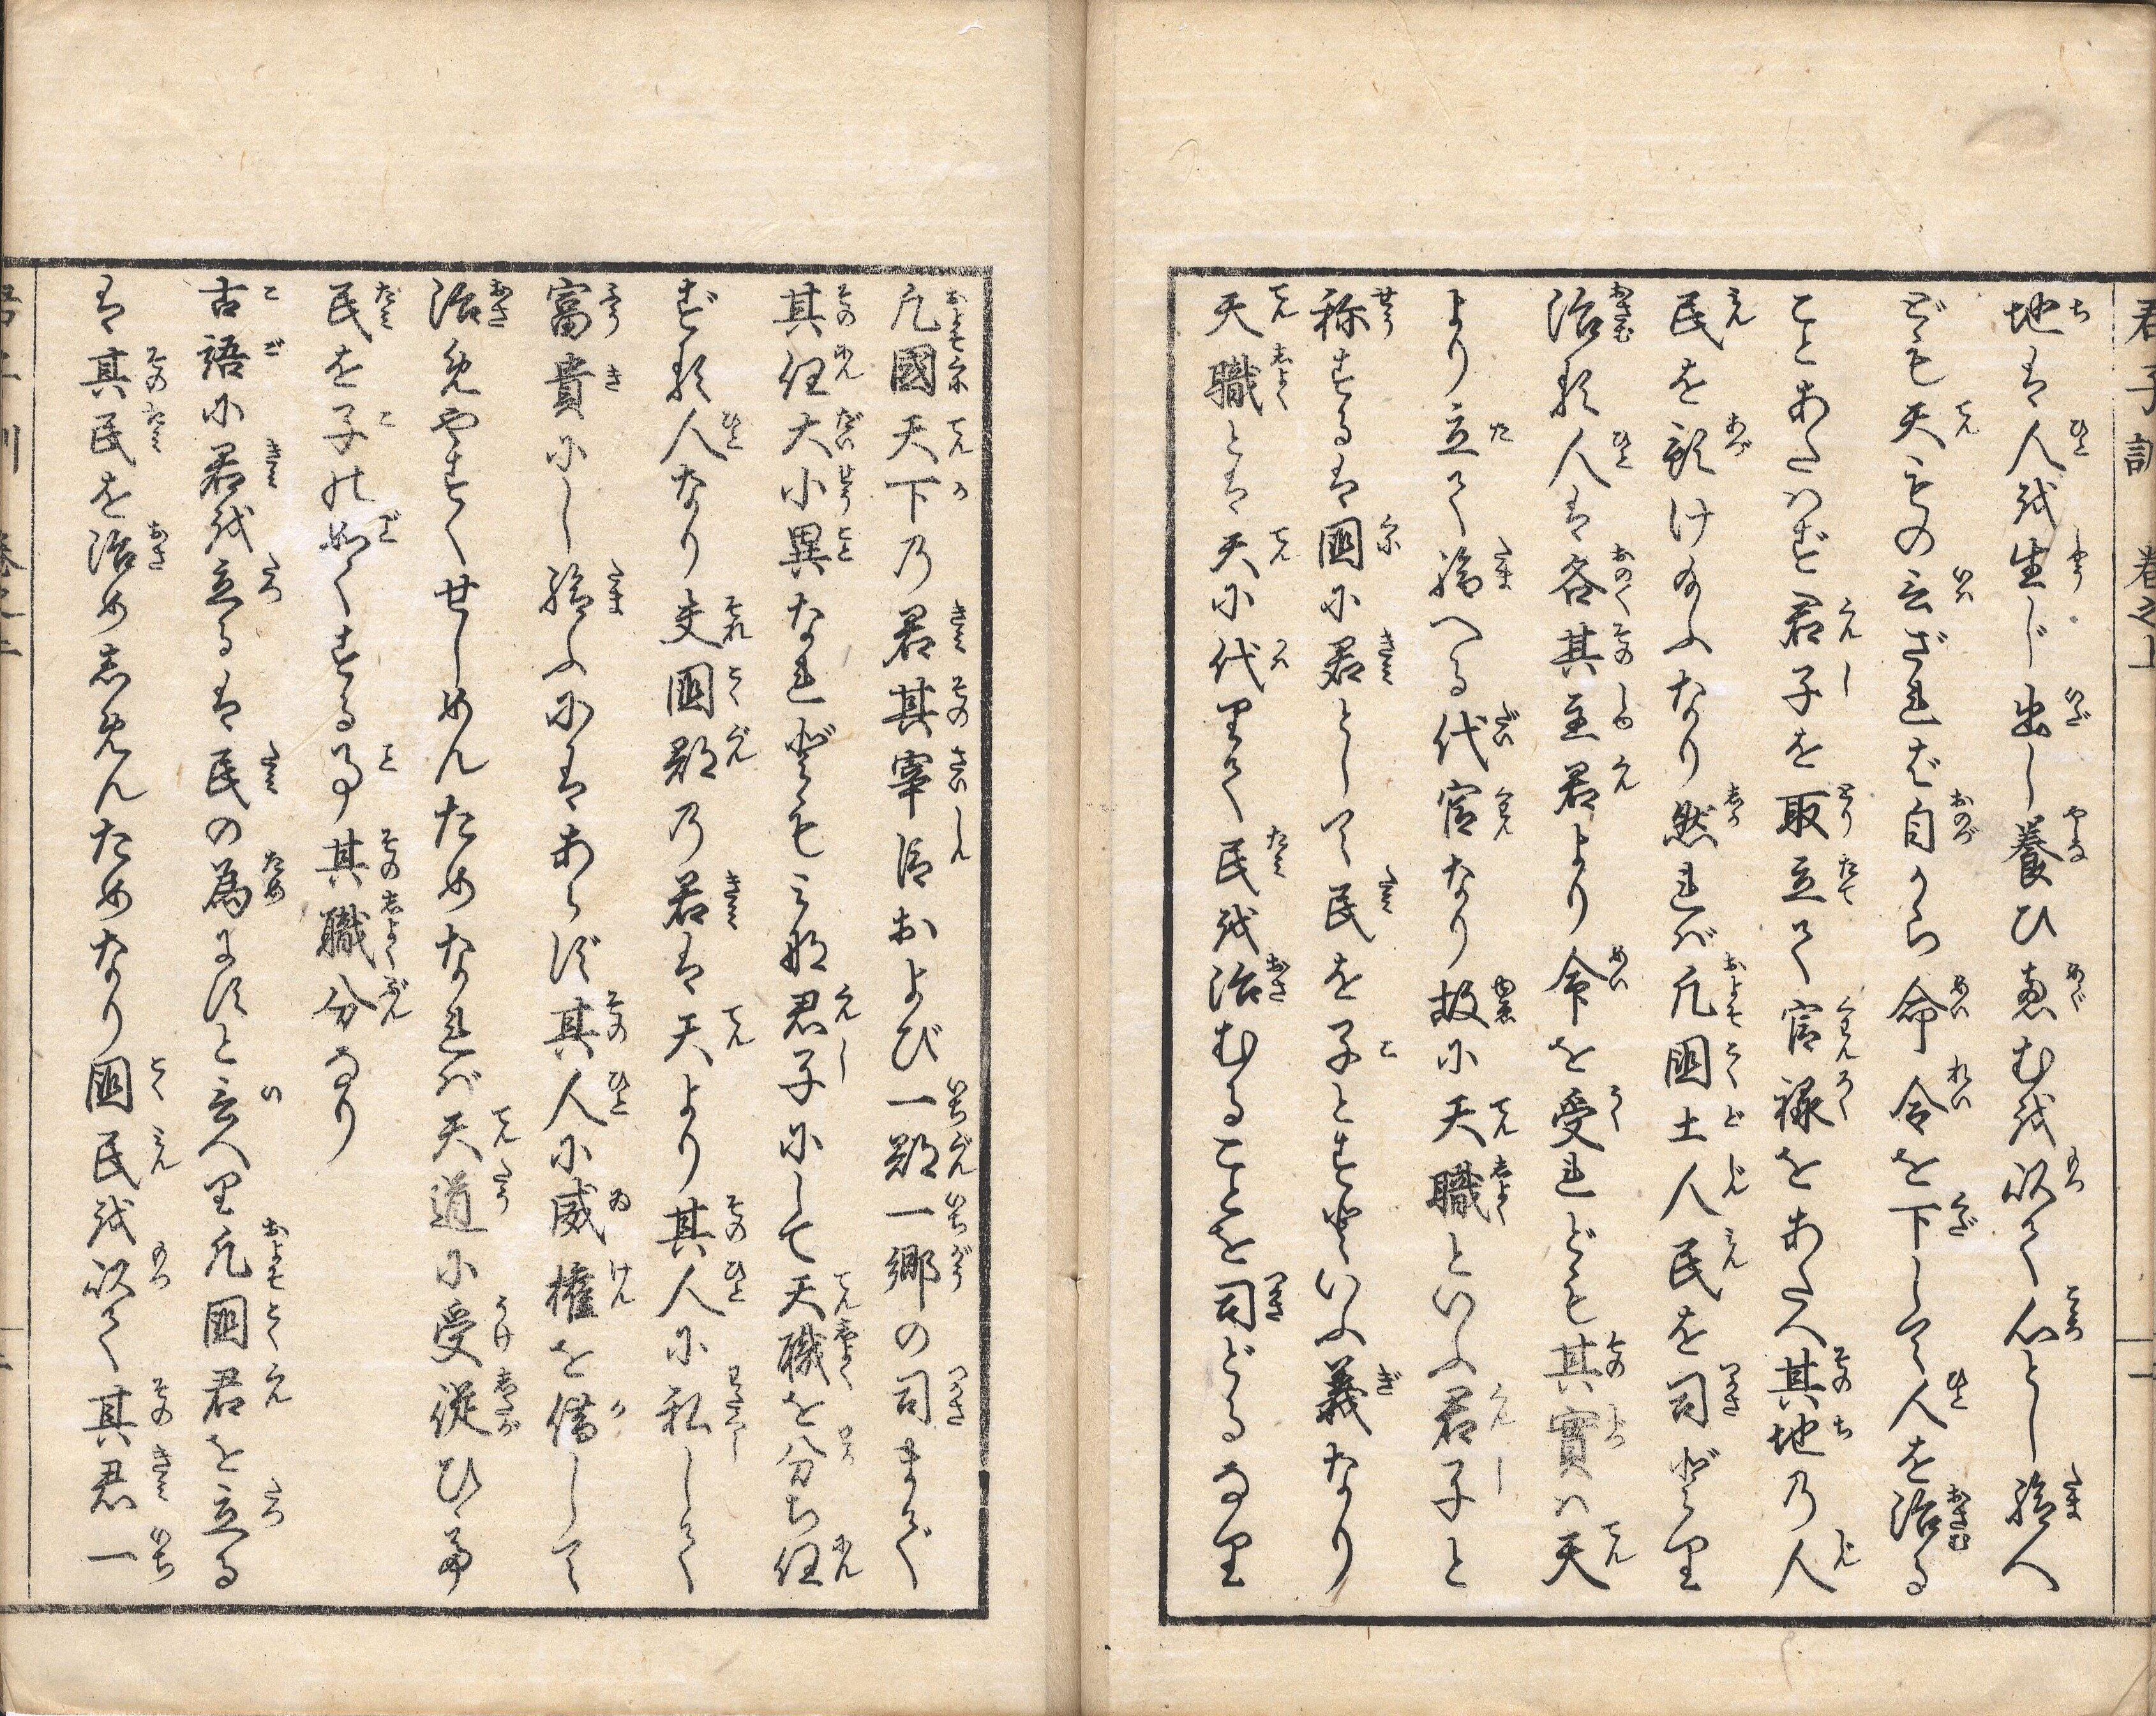 君子訓 巻之上 十一
地は人を生じ出し養ひ恵むを以て心とし給へ
ども天もの云ざれば自から命令を下して人を治る
ことあたはず君子を取立て官禄をあたへ其地の人
民を預け給ふなり然れば凡国土人民を司どり
治る人は各其主君より命を受れども其實は天
より立て給へる代官なり故に天職といふ君子と
称するは国に君として民を子とするといふ義なり
天職とは天に代りて民を治むることを司どるなり
凡國天下の君其宰臣および一郡一郷の司まで
其任大小異なれども皆君子にして天職を分ち任
ずる人なり夫国郡の君は天より其人に私して
富貴にし給ふにはあらず其人に威権を借して
治めやすくせしめんためなれば天道に受従ひ
民を子の如くする事其職分なり
古語に君を立るは民の為にすと云へり凡国君を立る
は其民を治めしめんためなり国民を以て其君一